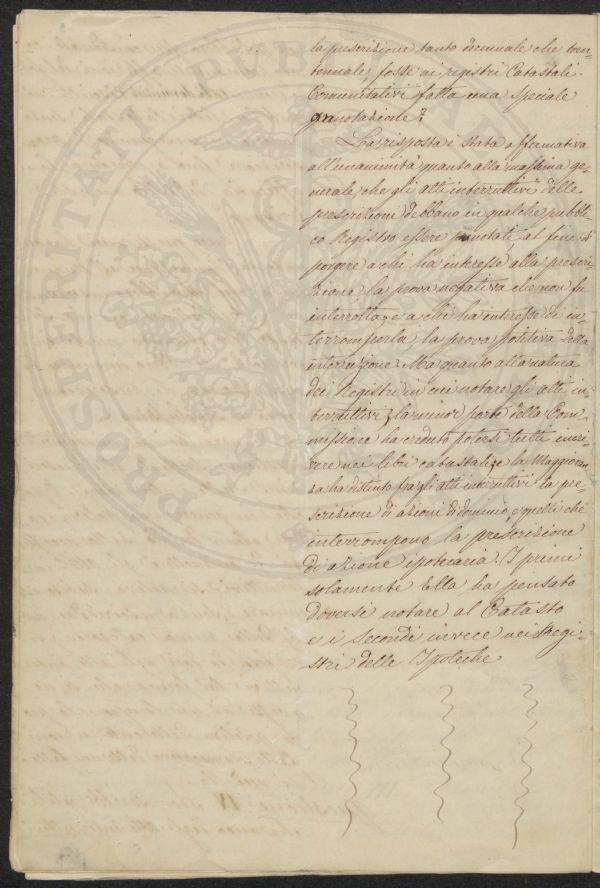 la prescrizione tanto decennale che tren-
tennale, fosse ai registri Catastali
Comunitativi fatta una speciale
annotazione?
La risposta è stata affermativa
all'unanimità quanto alla massima ge-
nerale, che gli atti interruttivi delle
prescrizioni debbano in qualche pubbli-
co Registro essere annotati al fine di
porgere a chi ha interesse alla prescri-
zione la prova negativa che non fu
interrotta, e a chi ha interesse di in-
terromperla, la prova positiva della
interruzione. Ma quanto alla natura
dei Registri in cui notare gli atti in-
terruttivi, la minor parte della Com-
missione ha creduto potersi tutti inscri-
vere nei libri catastali, e la Maggioran-
za ha distinto fra gli atti interruttivi la pre-
scrizione di azioni di dominio, e quelli che
interrompono la prescrizione
di azione ipotecaria. I primi
solamente Ella ha pensato
doversi notare al Catasto
e i Secondi invece nei Regi-
stri delle Ipoteche
PROSPERITATI PUBLICAE